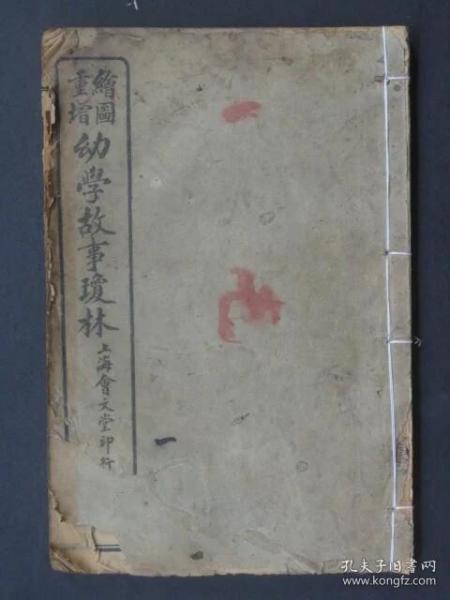 繪圖
重增
幼學故事瓊林
上海會文堂印行
一
孔夫子旧书网
www.kongfz.com